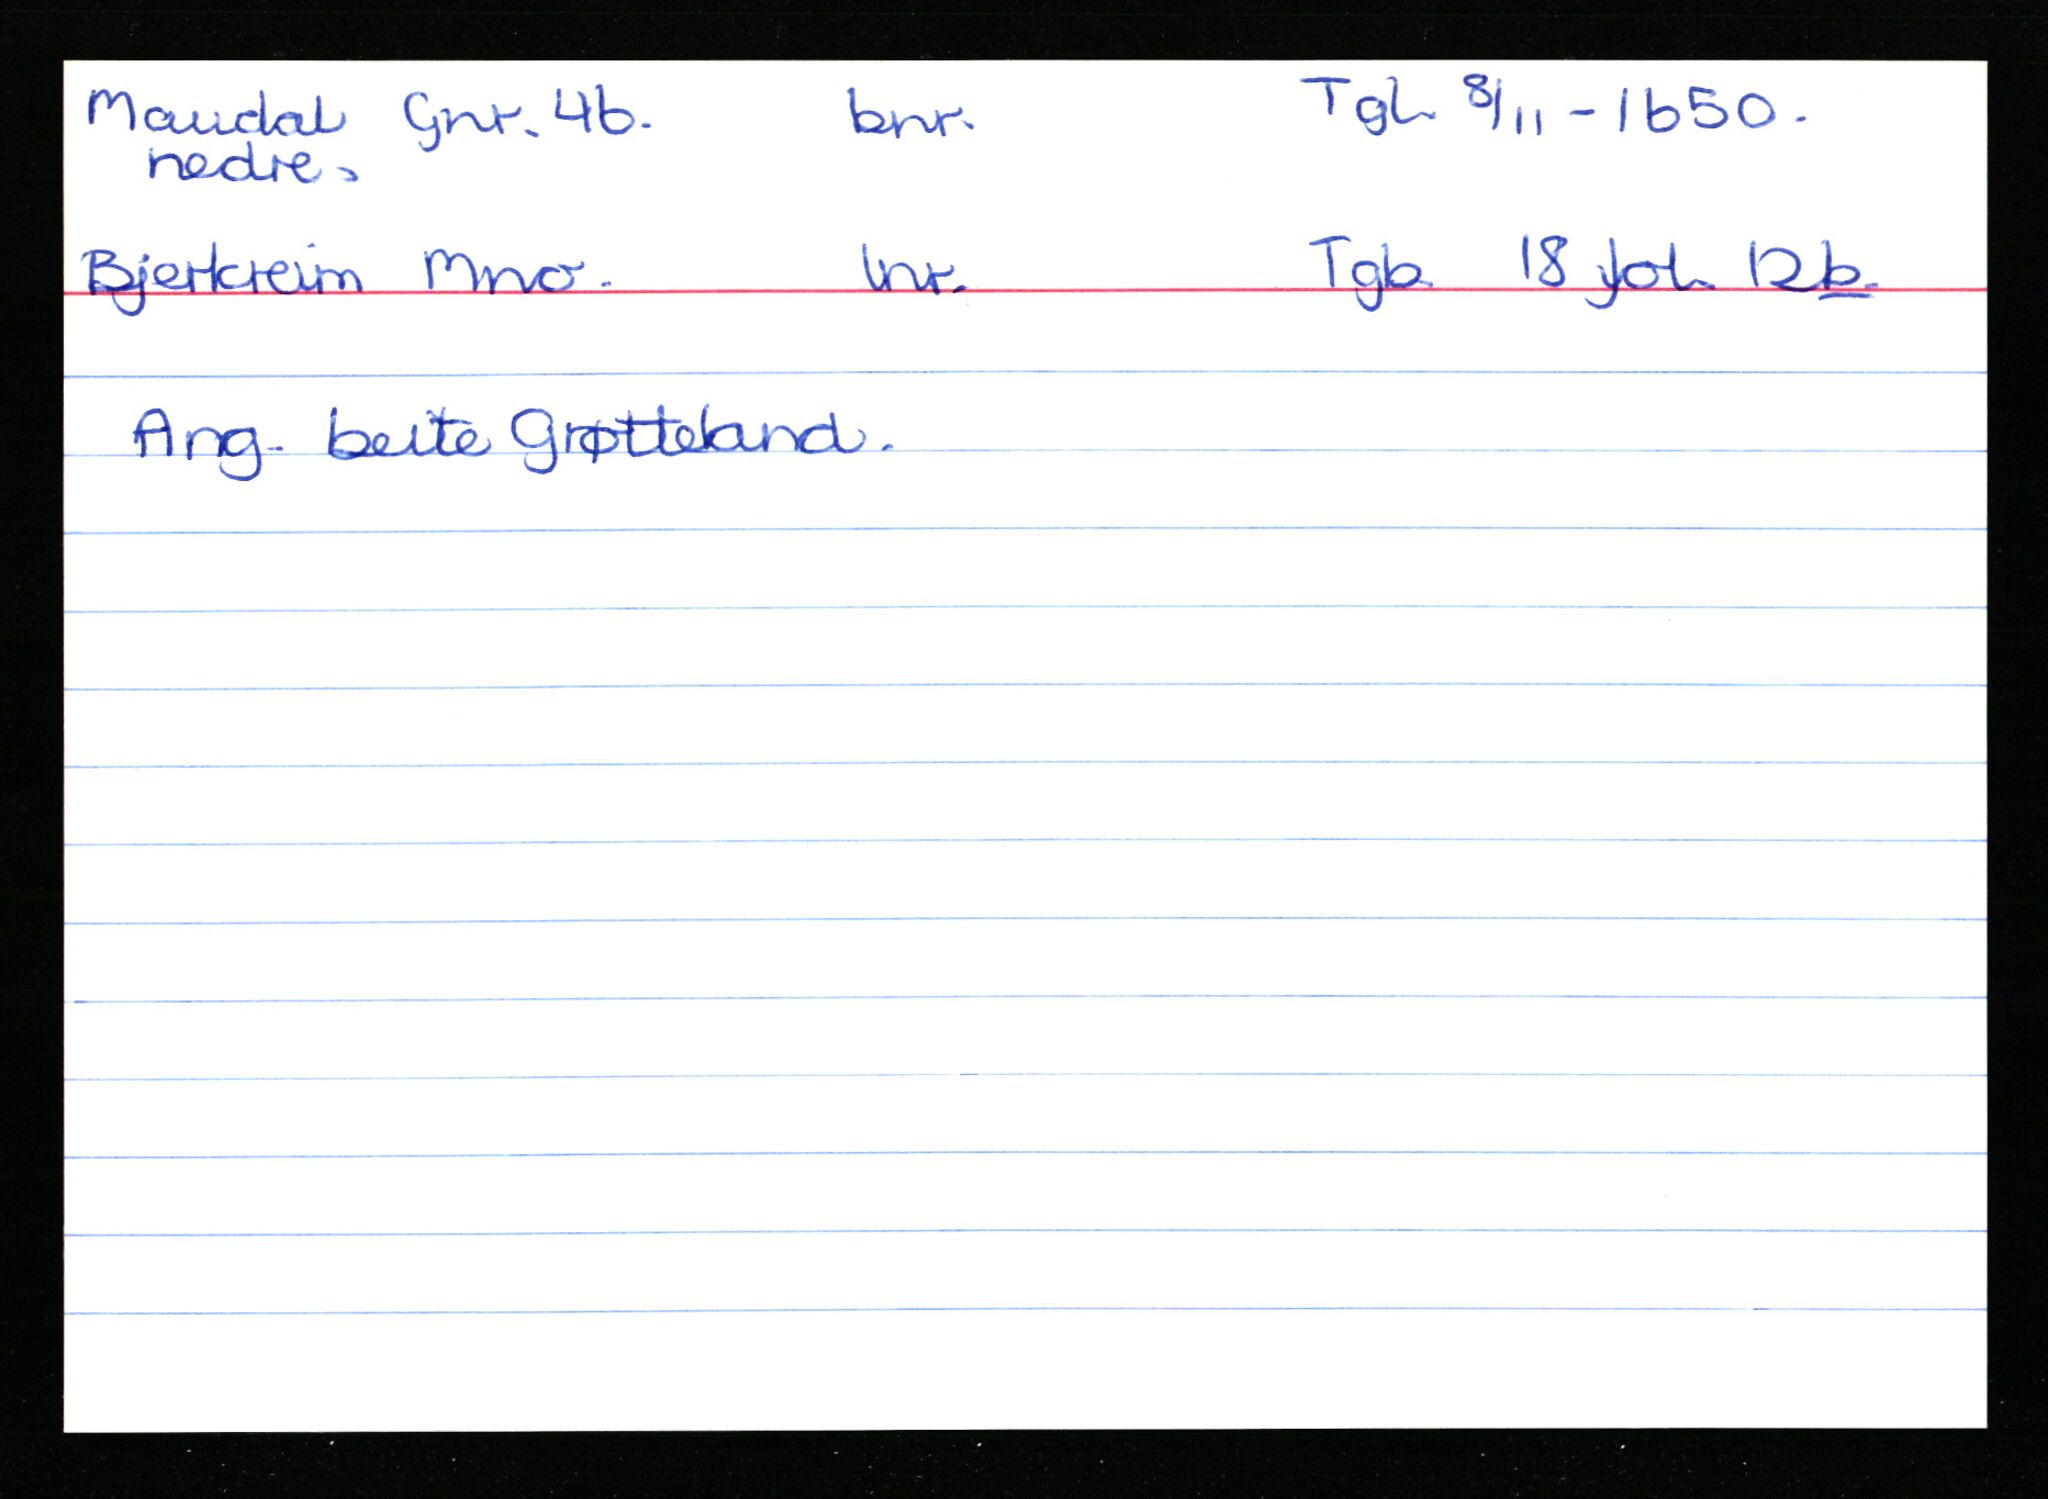 Maudal Gnr. 46. bnr. Tgl. 8/11 - 1650.
nedre.
Bjerkreim Mno. lnr. Tgb. 18 fol. 12b.
Ang. beite Grøtteland.